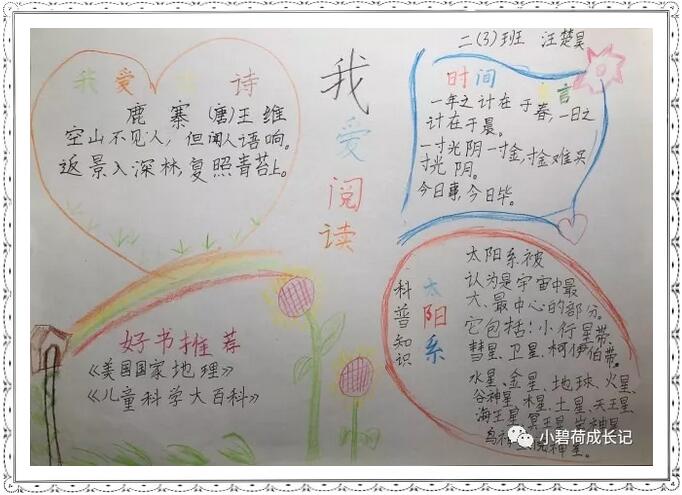 二(3)班 汪楚昊
我爱阅读
我爱 诗
鹿寨 (唐)王维
空山不见人，但闻人语响。
返景入深林，复照青苔上。
时间 言
一年之计在于春，一日之
计在于晨。
一寸光阴一寸金，寸金难买
寸光阴。
今日事，今日毕。
好书推荐
《美国国家地理》
《儿童科学大百科》
科普知识
太阳系
太阳系被
认为是宇宙中最
大、最中心的部分。
它包括：小行星带、
彗星、卫星、柯伊伯带。
水星、金星、地球、火星、
谷神星、木星、土星、天王星
海王星、冥王星、
鸟神
小碧荷成长记